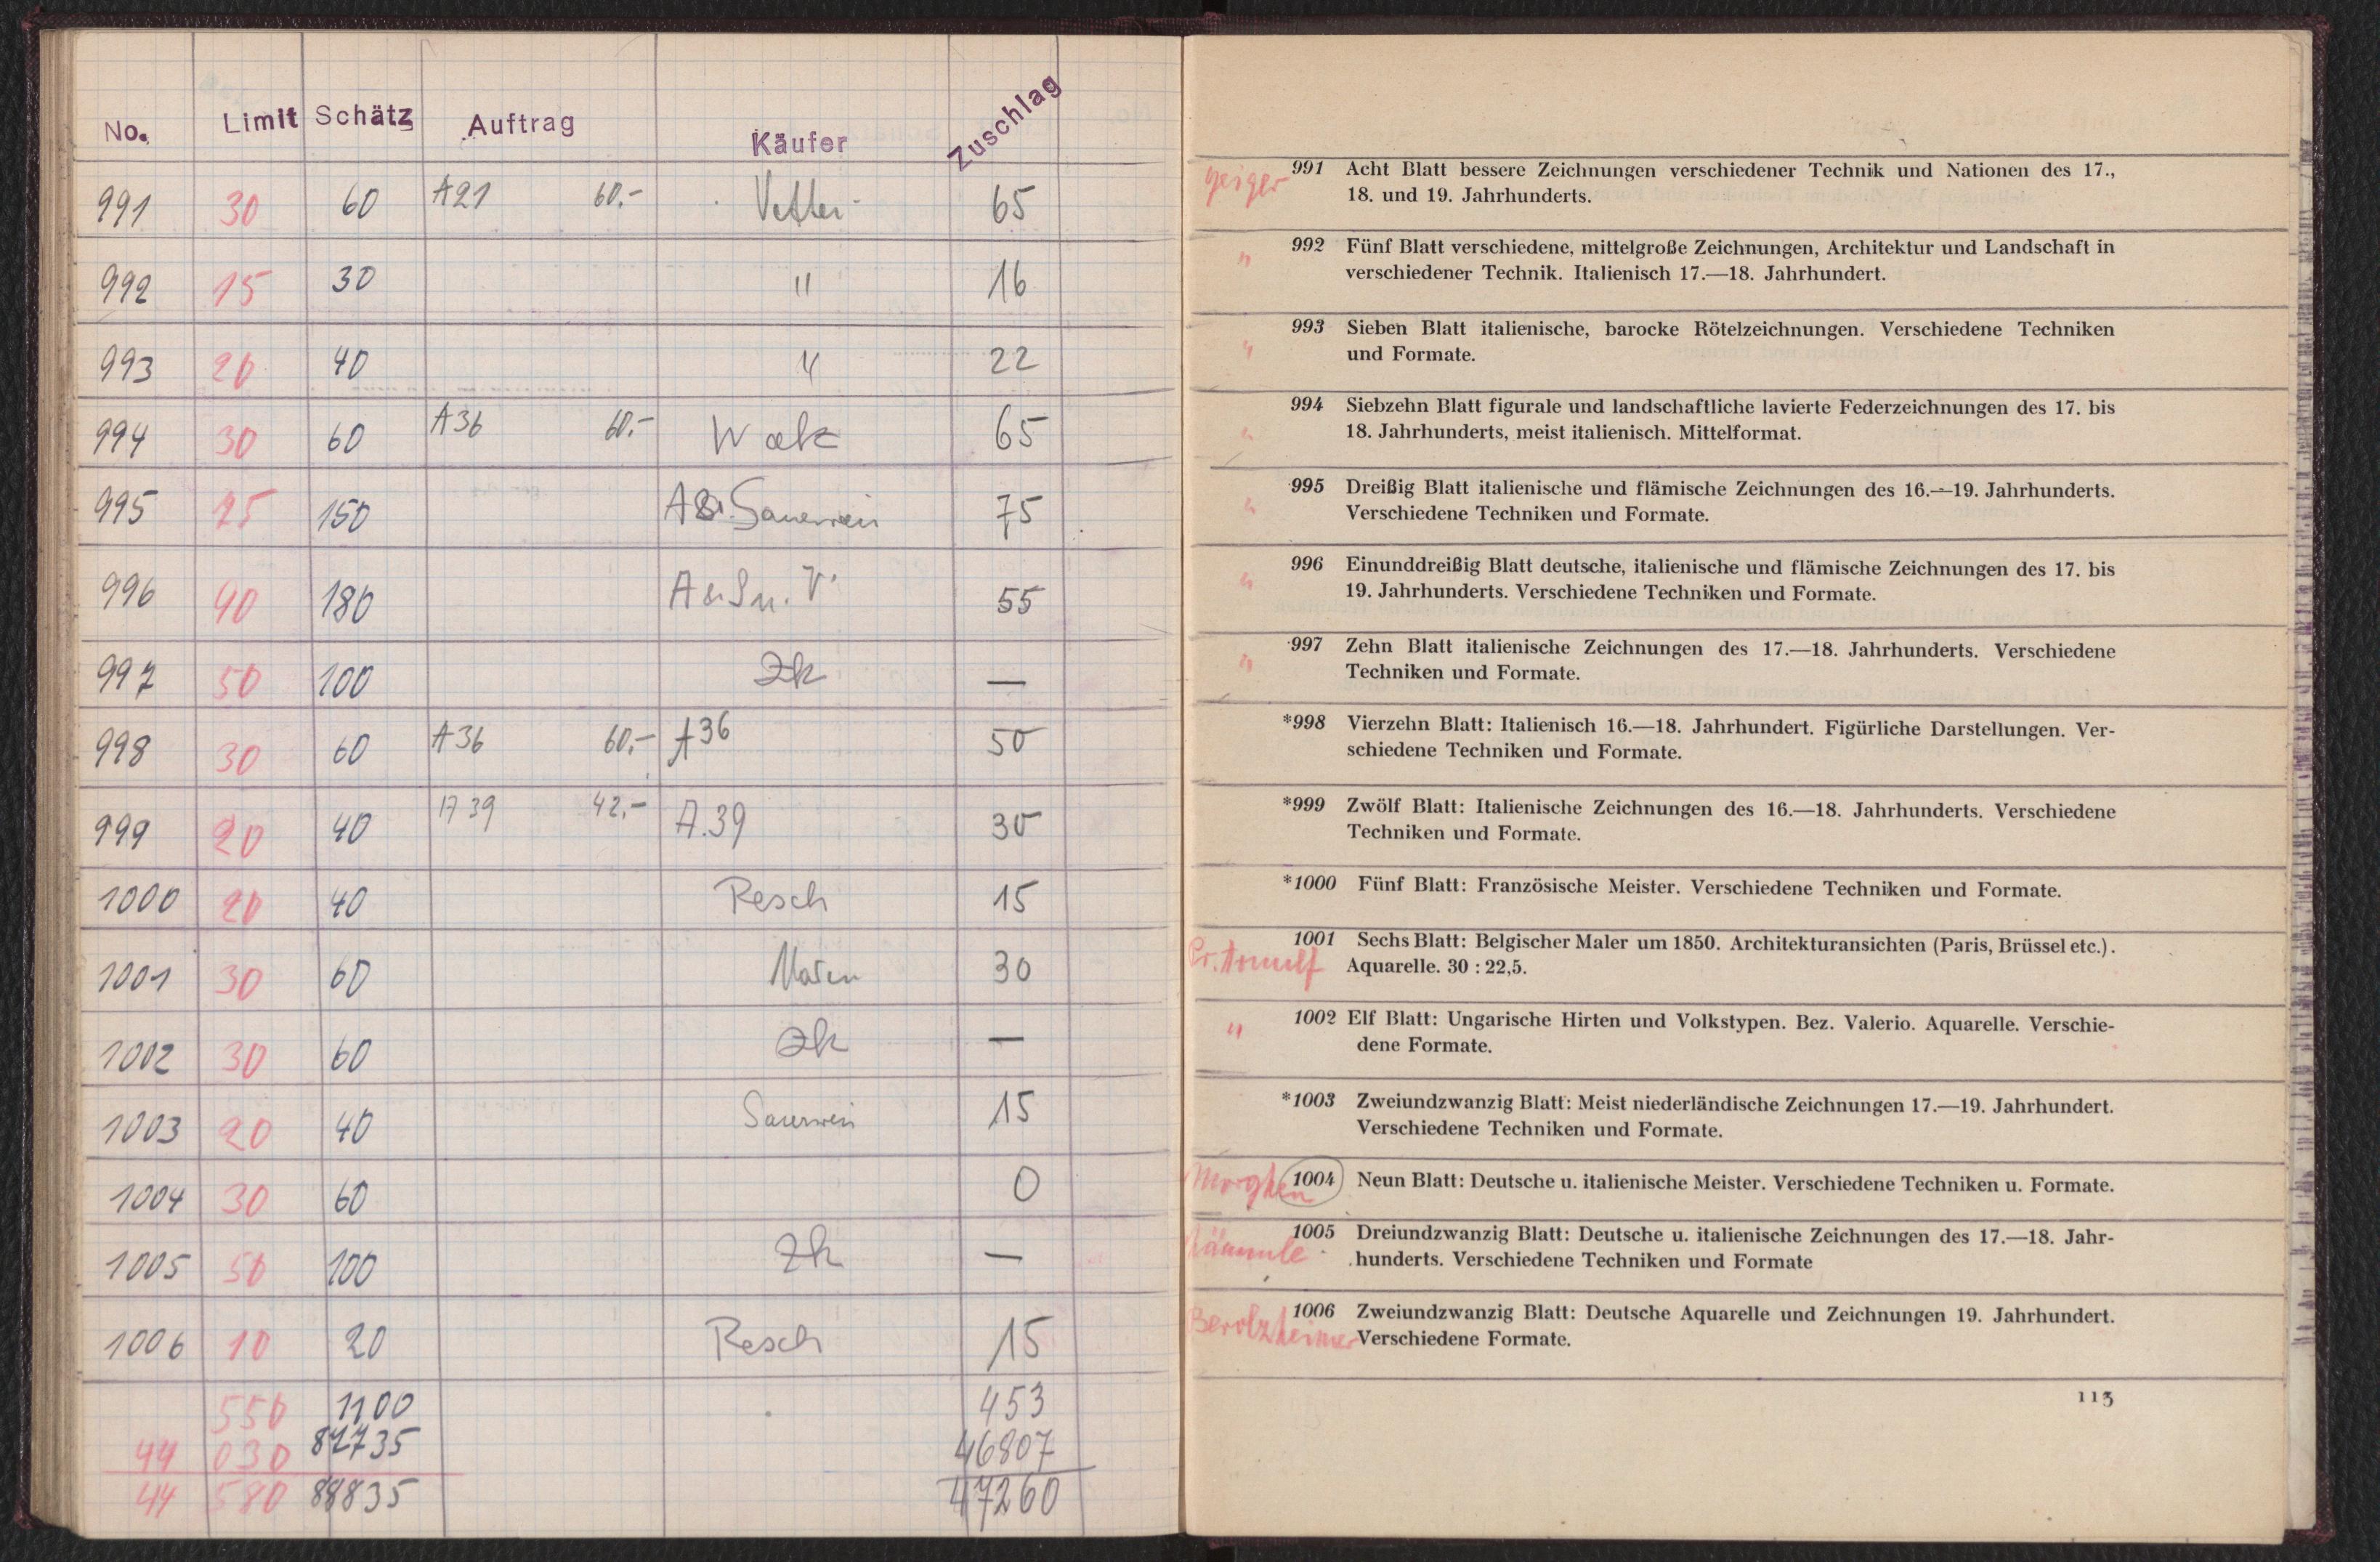 No. Limit Schätz Auftrag Käufer Zuschlag
991 30 60 A21 60.- Vetter 65
992 15 30 " 16
993 20 40 " 22
994 30 60 A36 60.- 65
995 150 Sauerwein 75
996 90 180 55
997 50 100 Zk —
998 30 60 A36 60.- A36 50
999 20 40 A39 42.- A.39 30
1000 20 40 Resch 15
1001 30 60 30
1002 30 60 Zk —
1003 20 40 Sauerwein 15
1004 30 60 0
1005 50 100 Zk —
1006 10 20 Resch 15
550 1100 453
44 030 46807
44 580 88835 47260
Geiger 991 Acht Blatt bessere Zeichnungen verschiedener Technik und Nationen des 17.,
18. und 19. Jahrhunderts.
" 992 Fünf Blatt verschiedene, mittelgroße Zeichnungen, Architektur und Landschaft in
verschiedener Technik. Italienisch 17.—18. Jahrhundert.
" 993 Sieben Blatt italienische, barocke Rötelzeichnungen. Verschiedene Techniken
und Formate.
" 994 Siebzehn Blatt figurale und landschaftliche lavierte Federzeichnungen des 17. bis
18. Jahrhunderts, meist italienisch. Mittelformat.
" 995 Dreißig Blatt italienische und flämische Zeichnungen des 16.—19. Jahrhunderts.
Verschiedene Techniken und Formate.
" 996 Einunddreißig Blatt deutsche, italienische und flämische Zeichnungen des 17. bis
19. Jahrhunderts. Verschiedene Techniken und Formate.
" 997 Zehn Blatt italienische Zeichnungen des 17.—18. Jahrhunderts. Verschiedene
Techniken und Formate.
*998 Vierzehn Blatt: Italienisch 16.—18. Jahrhundert. Figürliche Darstellungen. Ver-
schiedene Techniken und Formate.
*999 Zwölf Blatt: Italienische Zeichnungen des 16.—18. Jahrhunderts. Verschiedene
Techniken und Formate.
*1000 Fünf Blatt: Französische Meister. Verschiedene Techniken und Formate.
Pr. Arnulf 1001 Sechs Blatt: Belgischer Maler um 1850. Architekturansichten (Paris, Brüssel etc.).
Aquarelle. 30 : 22,5.
" 1002 Elf Blatt: Ungarische Hirten und Volkstypen. Bez. Valerio. Aquarelle. Verschie-
dene Formate.
*1003 Zweiundzwanzig Blatt: Meist niederländische Zeichnungen 17.—19. Jahrhundert.
Verschiedene Techniken und Formate.
Morghen 1004 Neun Blatt: Deutsche u. italienische Meister. Verschiedene Techniken u. Formate.
1005 Dreiundzwanzig Blatt: Deutsche u. italienische Zeichnungen des 17.—18. Jahr-
hunderts. Verschiedene Techniken und Formate
Berolzheimer 1006 Zweiundzwanzig Blatt: Deutsche Aquarelle und Zeichnungen 19. Jahrhundert.
Verschiedene Formate.
113